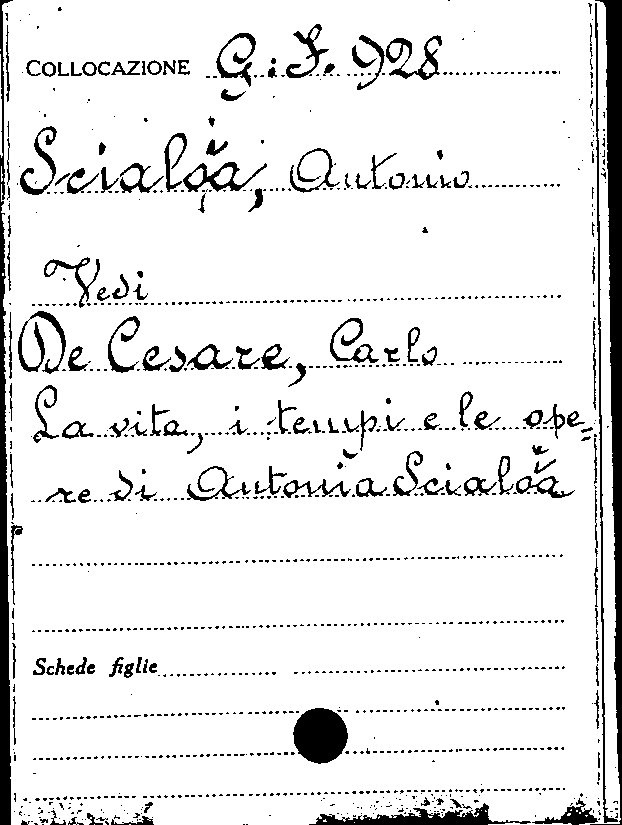 COLLOCAZIONE G: F. 928
Scialŏa, Antonio
Vedi
De Cesare, Carlo
La vita, i tempi e le ope=
re di Antonia Scialŏa
Schede figlie